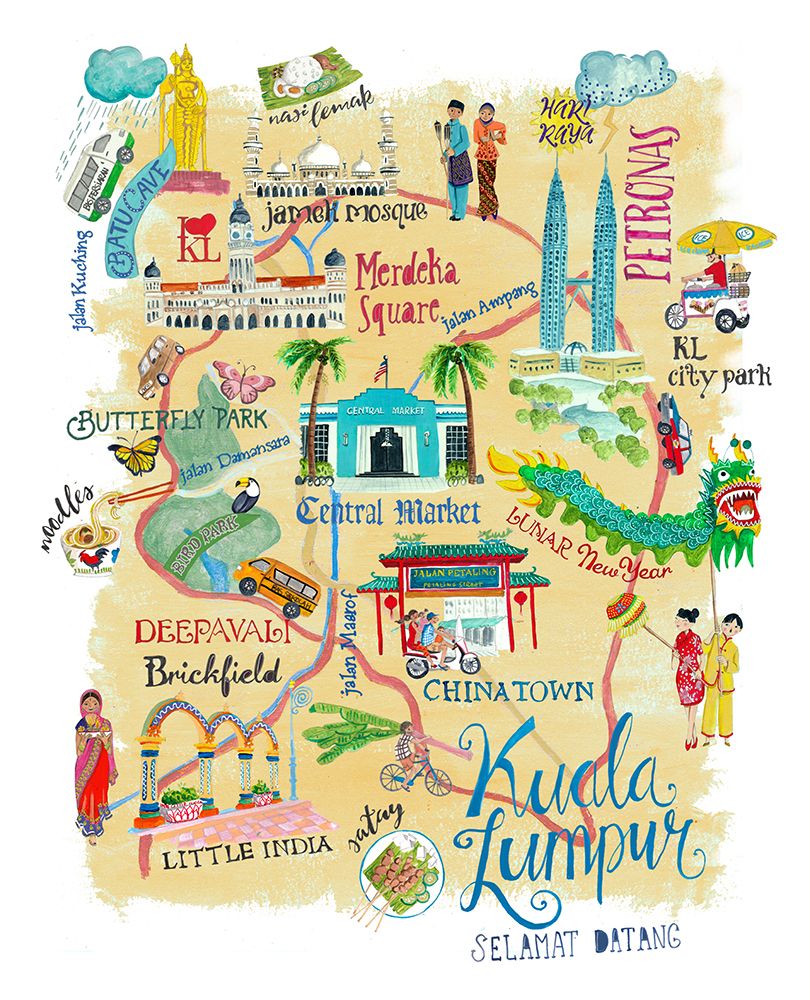 nasi lemak
HARI
RAYA
PETRONAS
BATU CAVE
jalan Kuching
I
KL
jameh mosque
Merdeka
Square
jalan Ampang
ICE
ICE
KL
city park
BUTTERFLY PARK
jalan Damansara
CENTRAL MARKET
Central Market
noodles
BIRD PARK
LUNAR New Year
JALAN PETALING
PETALING STREET
BAS SEKOLAH
DEEPAVALI
Brickfield
jalan Maarof
CHINATOWN
LITTLE INDIA
satay
Kuala
Lumpur
SELAMAT DATANG